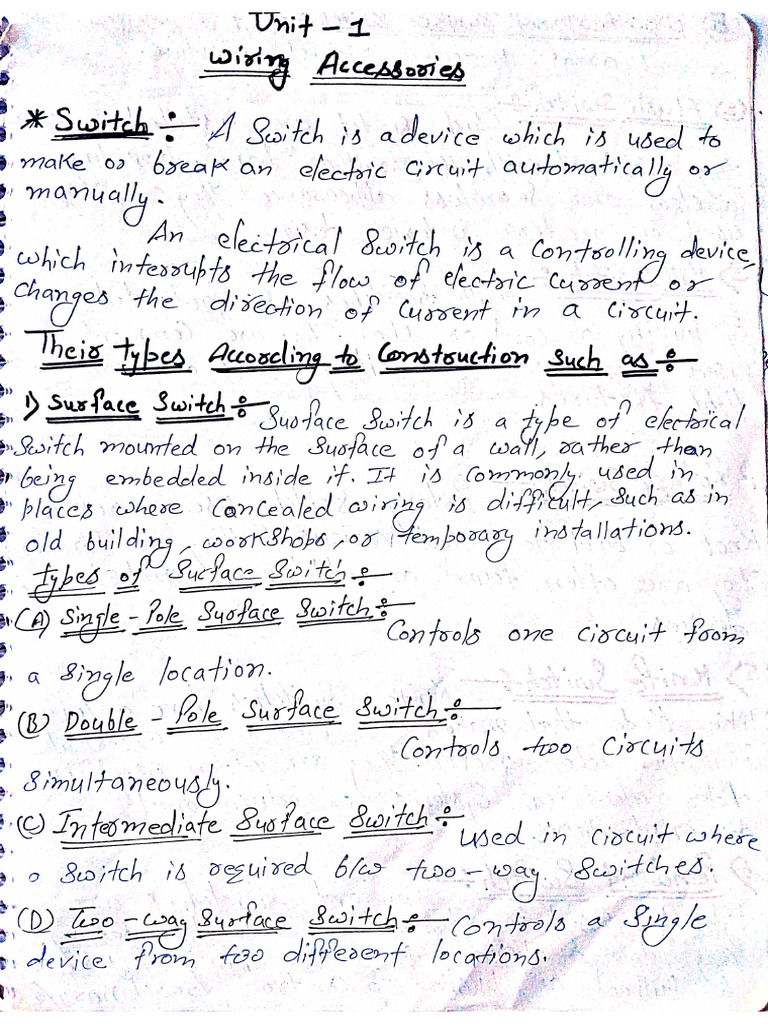 Unit - 1
Wiring Accessories
* Switch ÷ A Switch is a device which is used to
make or break an electric circuit automatically or
manually.
An electrical Switch is a Controlling device,
which interrupts the flow of electric Current or
changes the direction of Current in a Circuit.
Their types According to Construction such as ÷
1) Surface Switch ÷ Surface Switch is a type of electrical
Switch mounted on the Surface of a wall, rather than
being embedded inside it. It is commonly used in
places where Concealed wiring is difficult, such as in
old building, workshops, or temporary installations.
types of Surface Switch ÷
(A) Single-Pole Surface Switch ÷ Controls one circuit from
a single location.
(B) Double - Pole Surface Switch ÷
Controls two Circuits
Simultaneously.
(C) Intermediate Surface Switch ÷ Used in Circuit where
a Switch is required b/w two-way Switches.
(D) Two-way Surface Switch ÷ Controls a Single
device from two different locations.